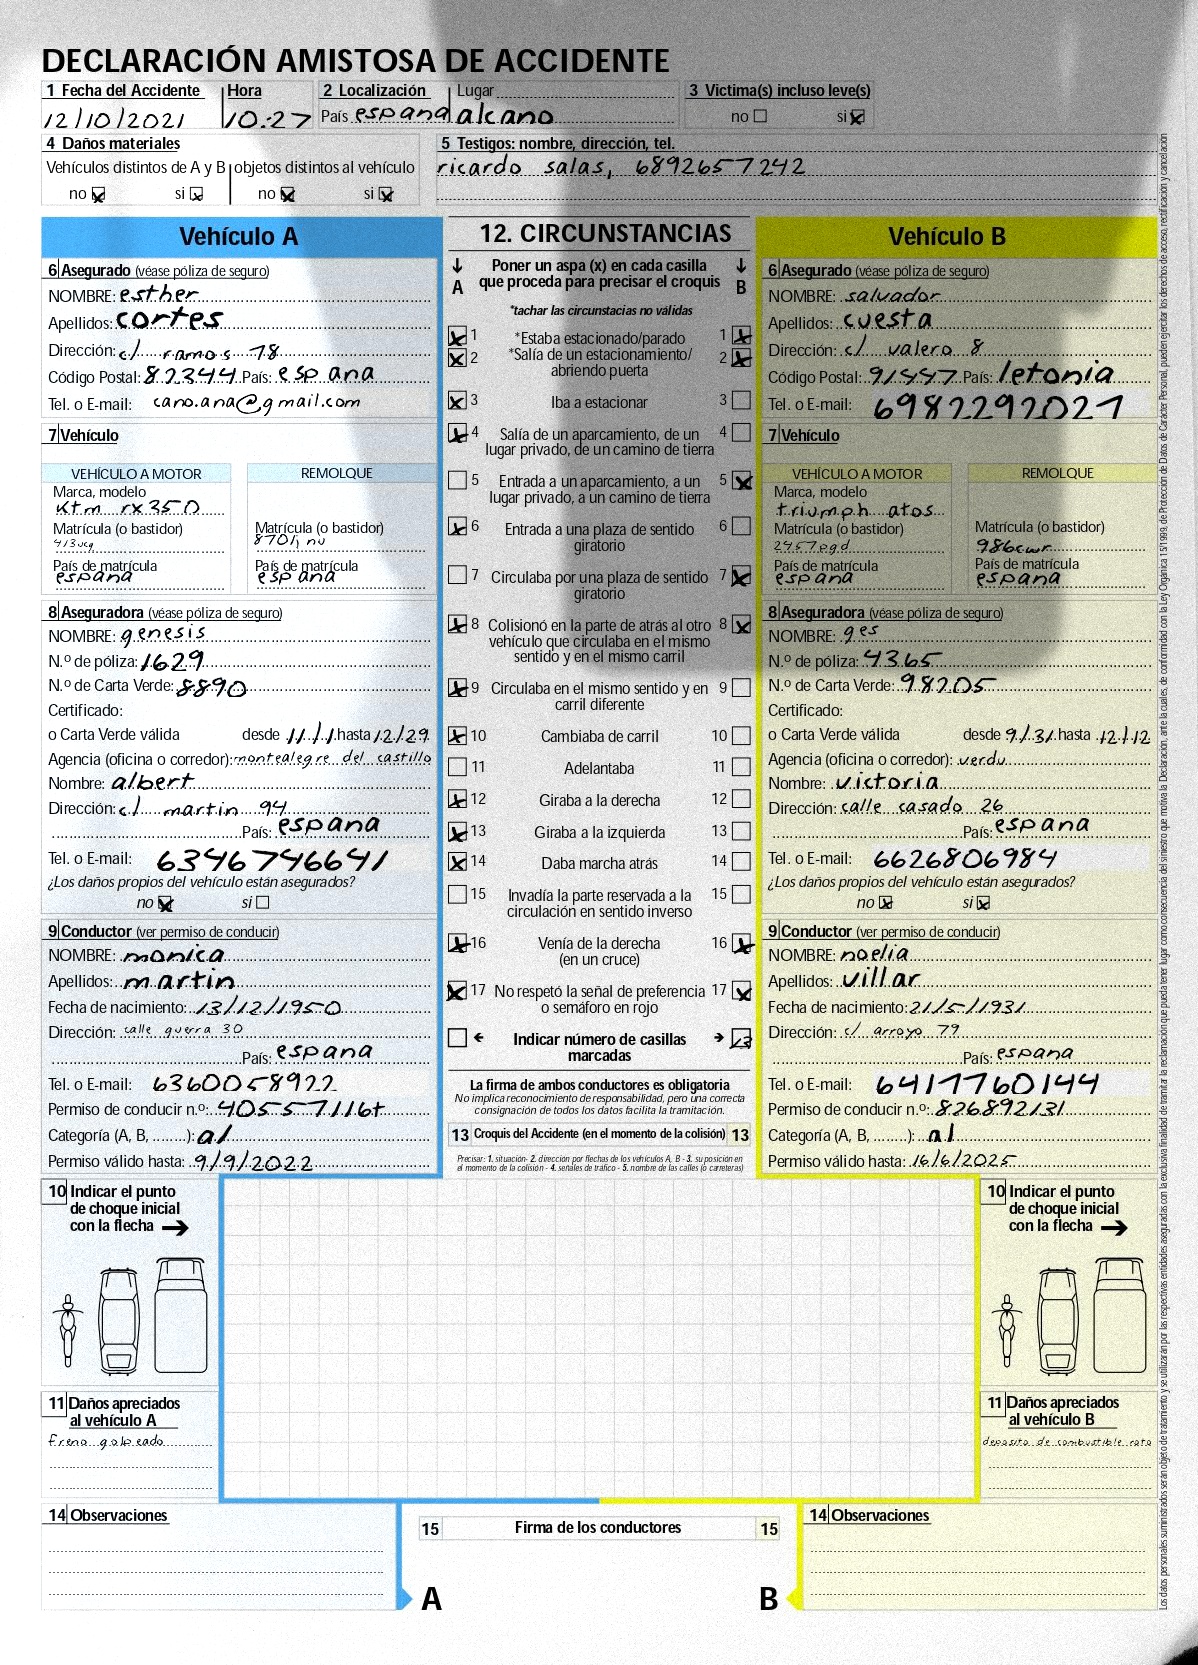 DECLARACIÓN AMISTOSA DE ACCIDENTE
1 Fecha del Accidente Hora 2 Localización Lugar 3 Victima(s) incluso leve(s)
12/10/2021 10:27 País espana alcano no si
4 Daños materiales 5 Testigos: nombre, dirección, tel.
Vehículos distintos de A y B objetos distintos al vehículo ricardo salas, 6892657242
no si no si
Vehículo A
6 Asegurado (véase póliza de seguro)
NOMBRE: esther
Apellidos: cortes
Dirección: c/ ramos 18
Código Postal: 82344 País: espana
Tel. o E-mail: cano.ana@gmail.com
7 Vehículo
VEHÍCULO A MOTOR REMOLQUE
Marca, modelo
ktm rx350
Matrícula (o bastidor) Matrícula (o bastidor)
413ucg 8701jnv
País de matrícula País de matrícula
espana espana
8 Aseguradora (véase póliza de seguro)
NOMBRE: genesis
N.º de póliza: 1629
N.º de Carta Verde: 8890
Certificado:
o Carta Verde válida desde 11/1 hasta 12/29
Agencia (oficina o corredor): montealegre del castillo
Nombre: albert
Dirección: c/ martin 94
País: espana
Tel. o E-mail: 6346746641
¿Los daños propios del vehículo están asegurados?
no si
9 Conductor (ver permiso de conducir)
NOMBRE: monica
Apellidos: martin
Fecha de nacimiento: 13/12/1950
Dirección: calle guerra 30
País: espana
Tel. o E-mail: 6360058922
Permiso de conducir n.º: 40557116t
Categoría (A, B, ........): a1
Permiso válido hasta: 9/9/2022
12. CIRCUNSTANCIAS
A Poner un aspa (x) en cada casilla que proceda para precisar el croquis B
*tachar las circunstacias no válidas
1 *Estaba estacionado/parado 1
2 *Salía de un estacionamiento/ abriendo puerta 2
3 Iba a estacionar 3
4 Salía de un aparcamiento, de un lugar privado, de un camino de tierra 4
5 Entrada a un aparcamiento, a un lugar privado, a un camino de tierra 5
6 Entrada a una plaza de sentido giratorio 6
7 Circulaba por una plaza de sentido giratorio 7
8 Colisionó en la parte de atrás al otro vehículo que circulaba en el mismo sentido y en el mismo carril 8
9 Circulaba en el mismo sentido y en carril diferente 9
10 Cambiaba de carril 10
11 Adelantaba 11
12 Giraba a la derecha 12
13 Giraba a la izquierda 13
14 Daba marcha atrás 14
15 Invadía la parte reservada a la circulación en sentido inverso 15
16 Venía de la derecha (en un cruce) 16
17 No respetó la señal de preferencia o semáforo en rojo 17
Indicar número de casillas marcadas 13
La firma de ambos conductores es obligatoria
No implica reconocimiento de responsabilidad, pero una correcta
consignación de todos los datos facilita la tramitación.
13 Croquis del Accidente (en el momento de la colisión) 13
Precisar: 1. situación- 2. dirección por flechas de los vehículos A, B - 3. su posición en
el momento de la colisión - 4. señales de tráfico - 5. nombre de las calles (o carreteras)
Vehículo B
6 Asegurado (véase póliza de seguro)
NOMBRE: salvador
Apellidos: cuesta
Dirección: c/ valero 8
Código Postal: 91447 País: letonia
Tel. o E-mail: 6982292021
7 Vehículo
VEHÍCULO A MOTOR REMOLQUE
Marca, modelo
triumph atos
Matrícula (o bastidor) Matrícula (o bastidor)
2457pgd 986cwr
País de matrícula País de matrícula
espana espana
8 Aseguradora (véase póliza de seguro)
NOMBRE: ges
N.º de póliza: 4365
N.º de Carta Verde: 98205
Certificado:
o Carta Verde válida desde 9/31 hasta 12/12
Agencia (oficina o corredor): verdu
Nombre: victoria
Dirección: calle casado 26
País: espana
Tel. o E-mail: 6626806984
¿Los daños propios del vehículo están asegurados?
no si
9 Conductor (ver permiso de conducir)
NOMBRE: noelia
Apellidos: villar
Fecha de nacimiento: 21/5/1931
Dirección: c/ arroyo 79
País: espana
Tel. o E-mail: 6417760144
Permiso de conducir n.º: 826892131
Categoría (A, B, ........): a1
Permiso válido hasta: 16/6/2025
10 Indicar el punto de choque inicial con la flecha
11 Daños apreciados al vehículo A
freno golpeado
14 Observaciones
15 Firma de los conductores 15
A B
10 Indicar el punto de choque inicial con la flecha
11 Daños apreciados al vehículo B
deposito de combustible roto
14 Observaciones